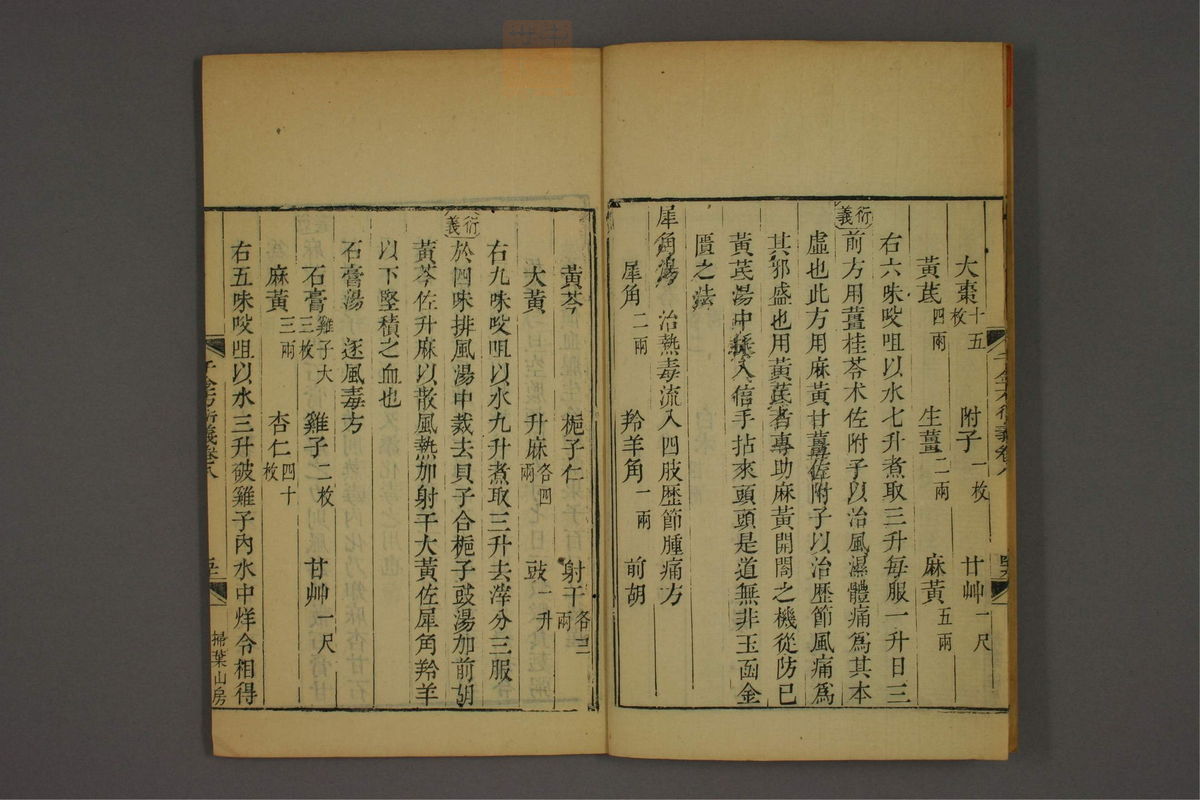 大棗十五枚 附子一枚 甘艸一尺
黃芪四兩 生薑二兩 麻黃五兩
右六味㕮咀以水七升煮取三升每服一升日三
衍義 前方用薑桂苓术佐附子以治風濕體痛爲其本
虛也此方用麻黃甘薑佐附子以治歷節風痛爲
其邪盛也用黃芪者專助麻黃開闔之機從防己
黃芪湯中採入信手拈來頭頭是道無非玉函金
匱之法
犀角湯 治熱毒流入四肢歷節腫痛方
犀角二兩 羚羊角一兩 前胡
黃芩 梔子仁 射干各三兩
大黃 升麻各四兩 豉一升
右九味㕮咀以水九升煮取三升去滓分三服
衍義 於四味排風湯中裁去貝子合梔子豉湯加前胡
黃芩佐升麻以散風熱加射干大黃佐犀角羚羊
以下堅積之血也
石膏湯 逐風毒方
石膏雞子大三枚 雞子二枚 甘艸一尺
麻黃三兩 杏仁四十枚
右五味㕮咀以水三升破雞子內水中烊令相得
千金方衍義卷八
掃葉山房